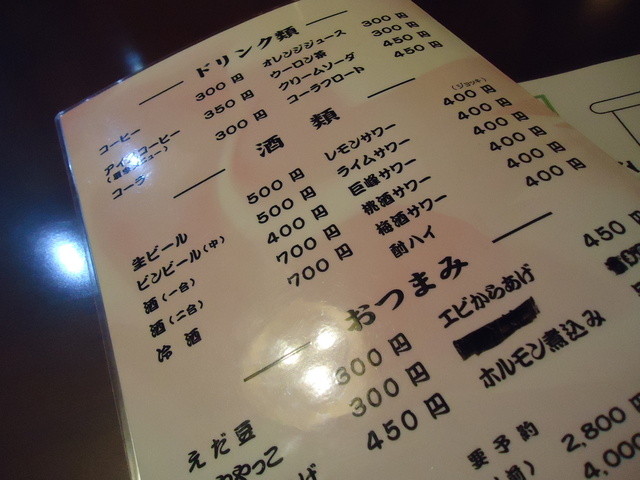 ドリンク類
コーヒー 300円
アイスコーヒー 350円
コーラ 300円
オレンジジュース 300円
ウーロン茶 300円
クリームソーダ 450円
コーラフロート 450円
酒類
生ビール 500円
ビンビール(中) 500円
酒(一合) 400円
酒(二合) 700円
冷酒 700円
(ジョッキ)
レモンサワー 400円
ライムサワー 400円
巨峰サワー 400円
桃酒サワー 400円
梅酒サワー 400円
酎ハイ 400円
おつまみ
えだ豆 300円
やっこ 300円
げ 450円
エビからあげ 450円
ホルモン煮込み
要予約
2,800円
前) 4,000